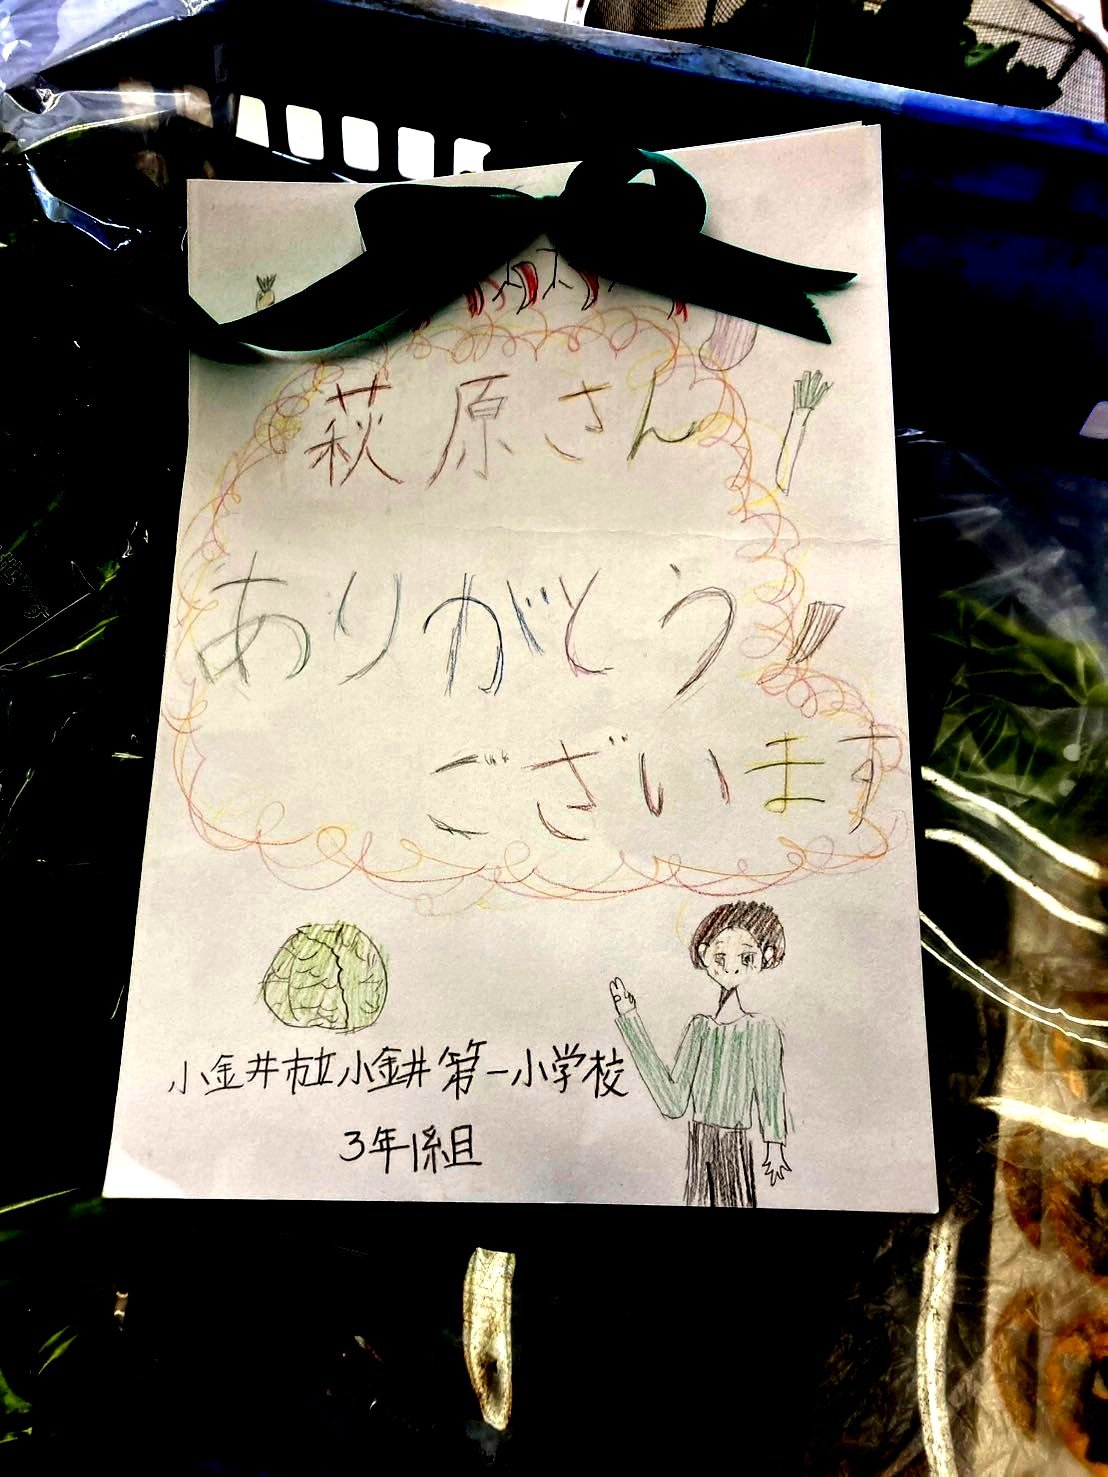 萩原さん
ありがとう
ございます
小金井市立小金井第一小学校
3年1組